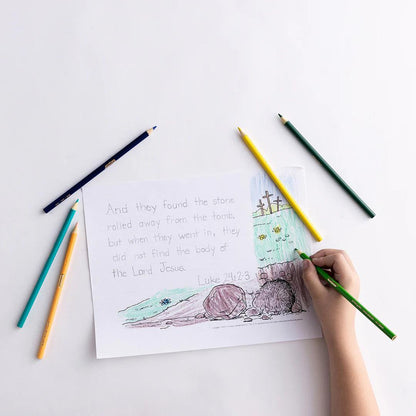 And they found the stone
rolled away from the tomb,
but when they went in, they
did not find the body of
the Lord Jesus.
Luke 24:2-3